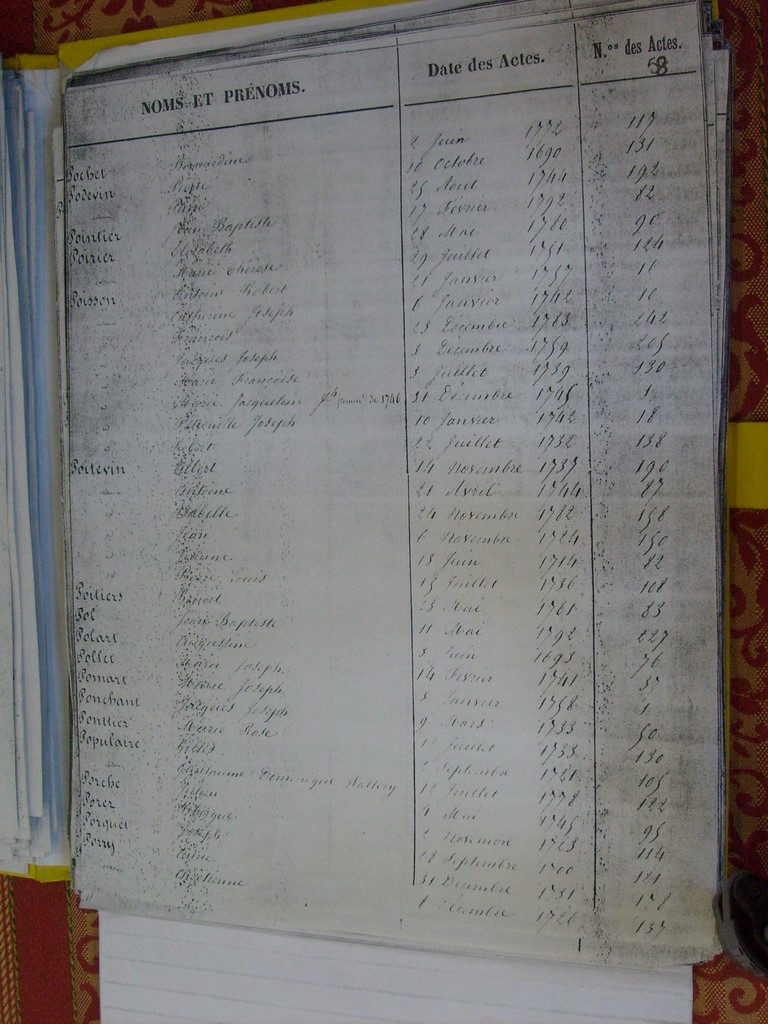 NOMS ET PRÉNOMS. Date des Actes. N.os des Actes.
68
Pochet Bernardine 2 Juin 1772 117
Podevin 10 Octobre 1690 131
25 Aout 1744 192
Pointier Jean Baptiste 17 Février 1792 82
Poirier Elisabeth 28 Mai 1780 90
Marie Thérèse 29 Juillet 1751 124
Poisson Antoine Robert 21 Janvier 1757 11
Catherine Joseph 6 Janvier 1742 10
François 23 Décembre 1783 242
Jacques Joseph 3 Décembre 1759 205
Marie Françoise 3 Juillet 1739 130
Marie Jacqueline Jh de 1746 31 Décembre 1745 1
Pétronille Joseph 10 Janvier 1742 18
Robert 22 Juillet 1732 138
Poitevin Albert 14 Novembre 1737 190
Antoine 21 Avril 1744 87
Isabelle 24 Novembre 1782 158
Jean 6 Novembre 1724 150
13 Juin 1714 82
Pierre Louis 15 Juillet 1736 108
Poitiers Benoit 23 Mai 1761 83
Pol Jean Baptiste 11 Mai 1792 227
Polart Augustine 3 Juin 1693 76
Pollet Marie Joseph 14 Février 1741 37
Pomart Marie Joseph 3 Janvier 1758 1
Ponchant Jacques Joseph 9 Mars 1733 50
Ponttier Marie Rose Juillet 1733 130
Populaire 2 Septembre 1721 105
Guillaume Dominique Wallery 12 Juillet 1778 122
Porche 4 Mai 1745 95
Porer 2 Novembre 1723 114
Porquet Joseph 22 Septembre 1700 121
Porry Anne 31 Décembre 1731 178
Chrétienne 8 Décembre 1726 137